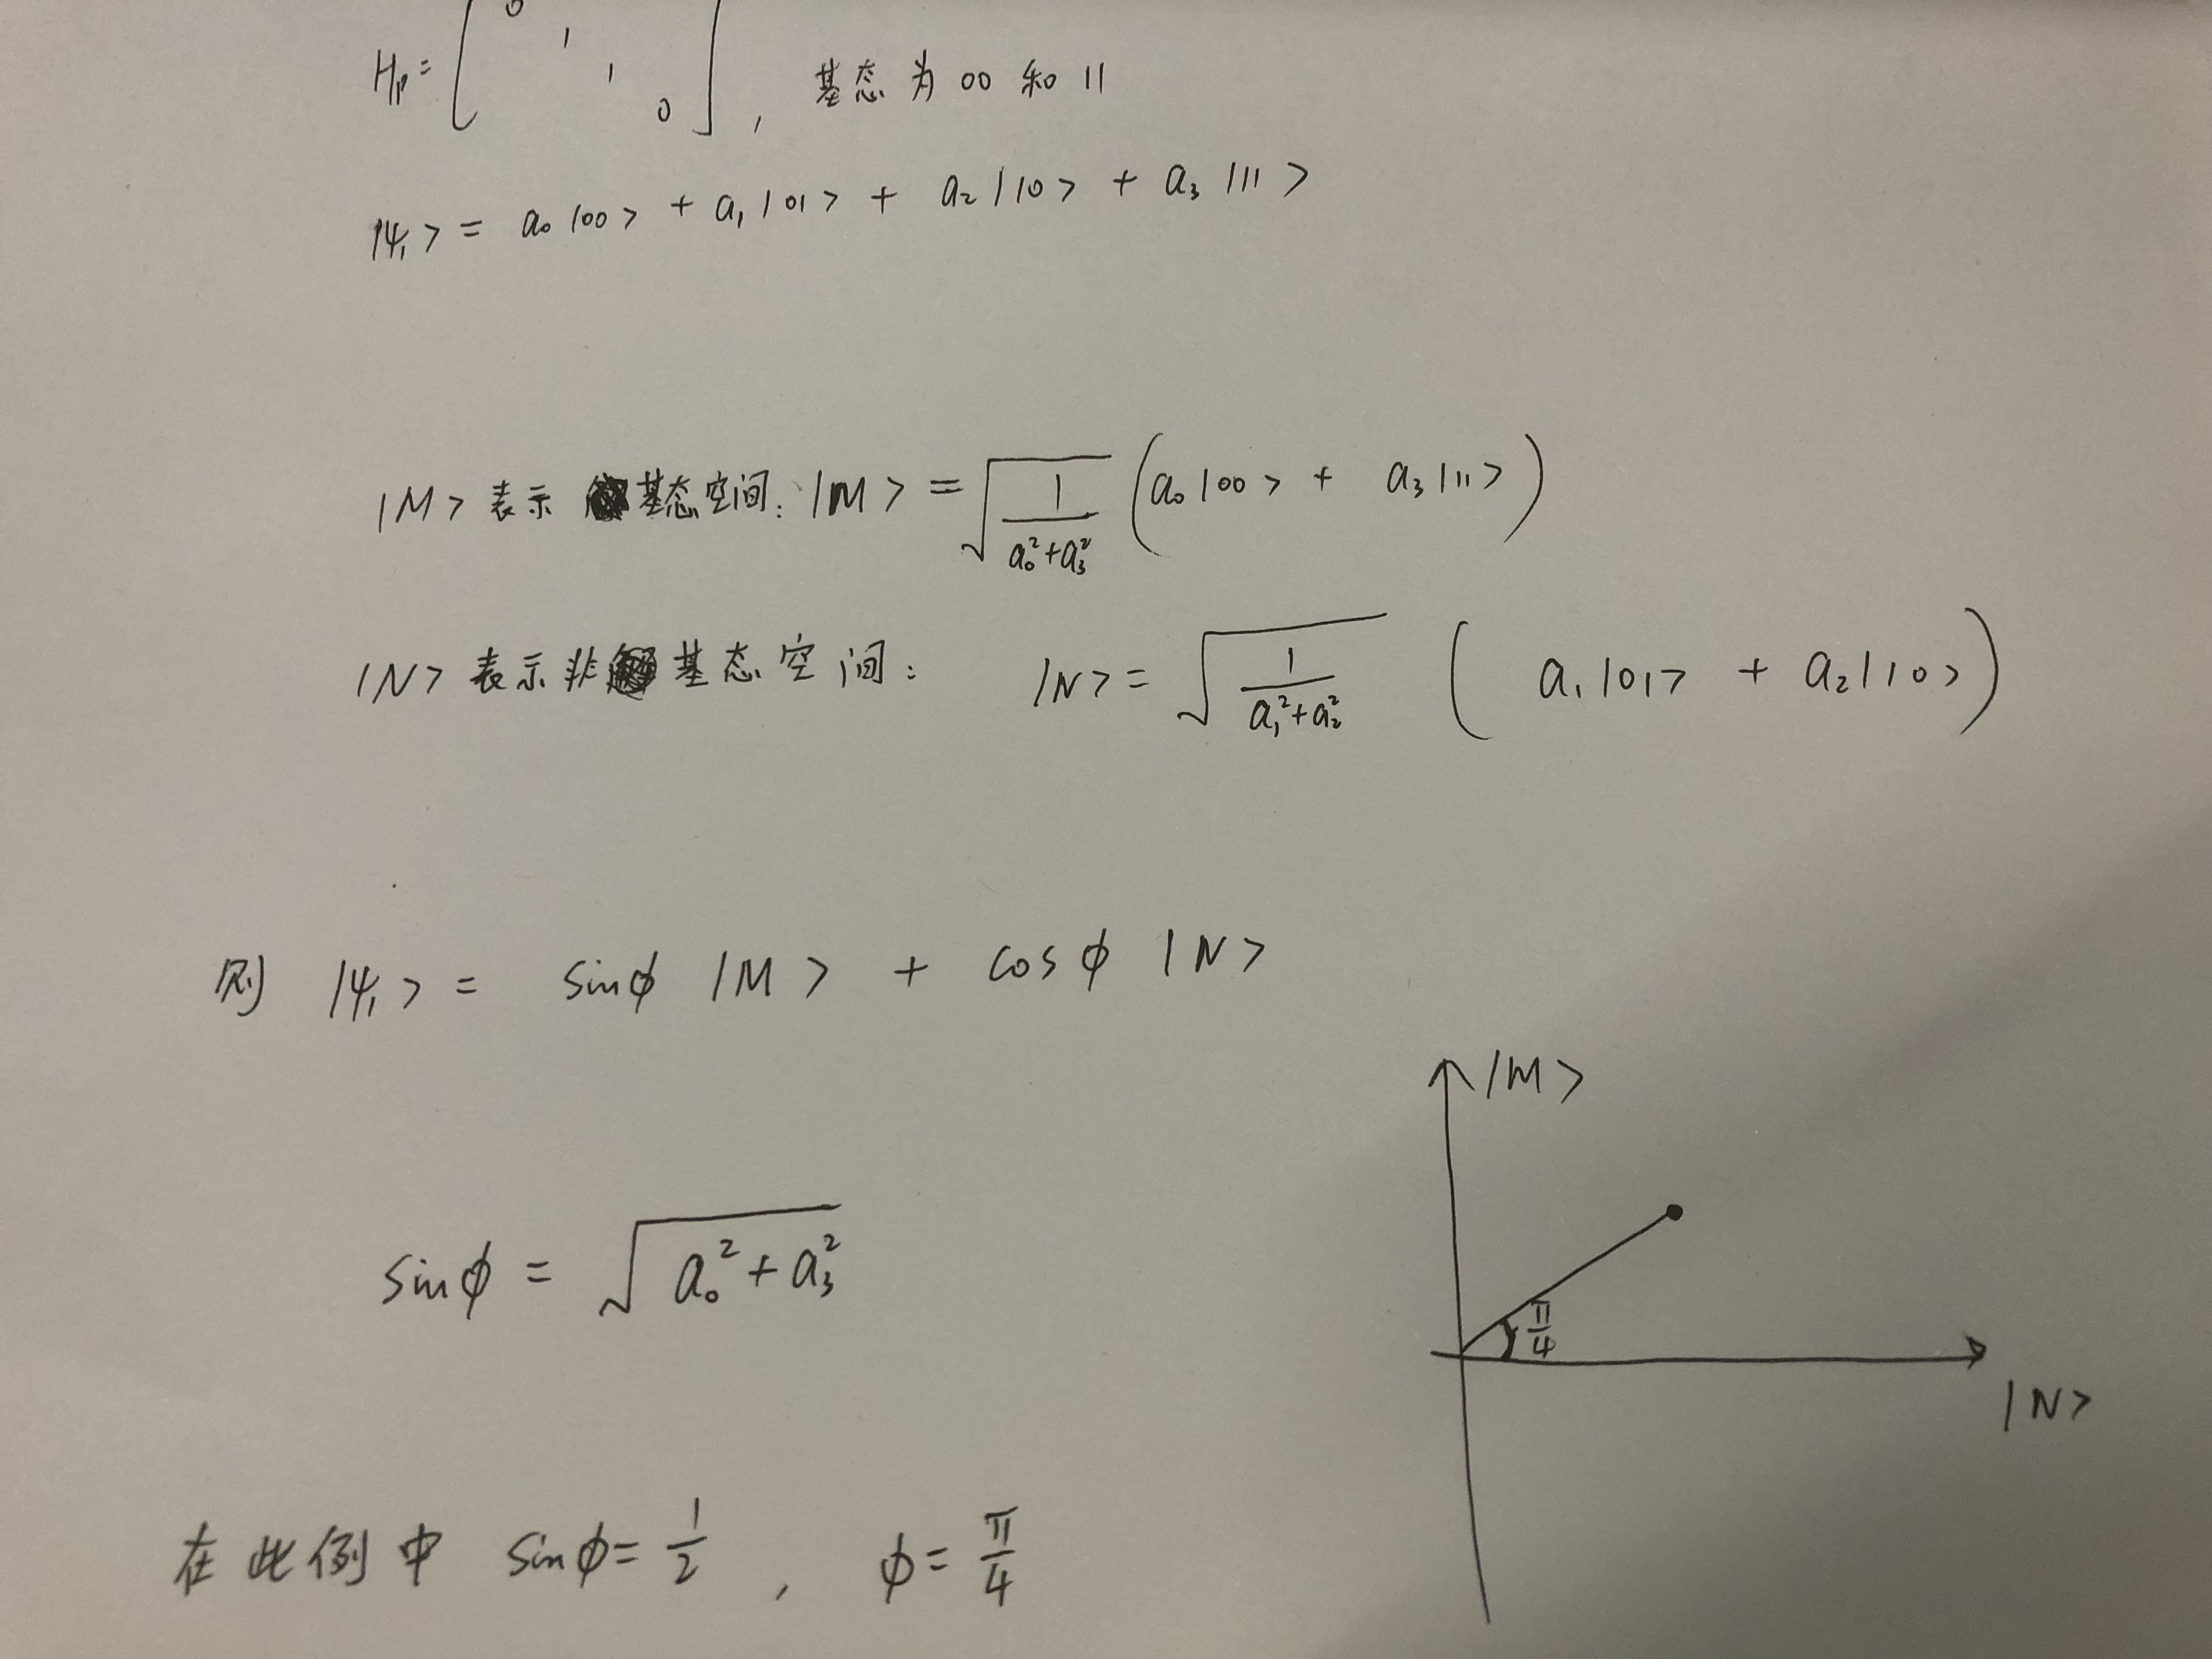 Hp = [ 0 1 1 0 ] , 基态为 00 和 11
|ψ₁> = a₀|00> + a₁|01> + a₂|10> + a₃|11>
|M> 表示 基态空间: |M> = √(1/(a₀²+a₃²)) (a₀|00> + a₃|11>)
|N> 表示非 基态空间: |N> = √(1/(a₁²+a₂²)) ( a₁|01> + a₂|10>)
则 |ψ₁> = sinϕ |M> + cosϕ |N>
|M>
sinϕ = √(a₀²+a₃²)
π/4
|N>
在此例中 sinϕ = 1/2 , ϕ = π/4